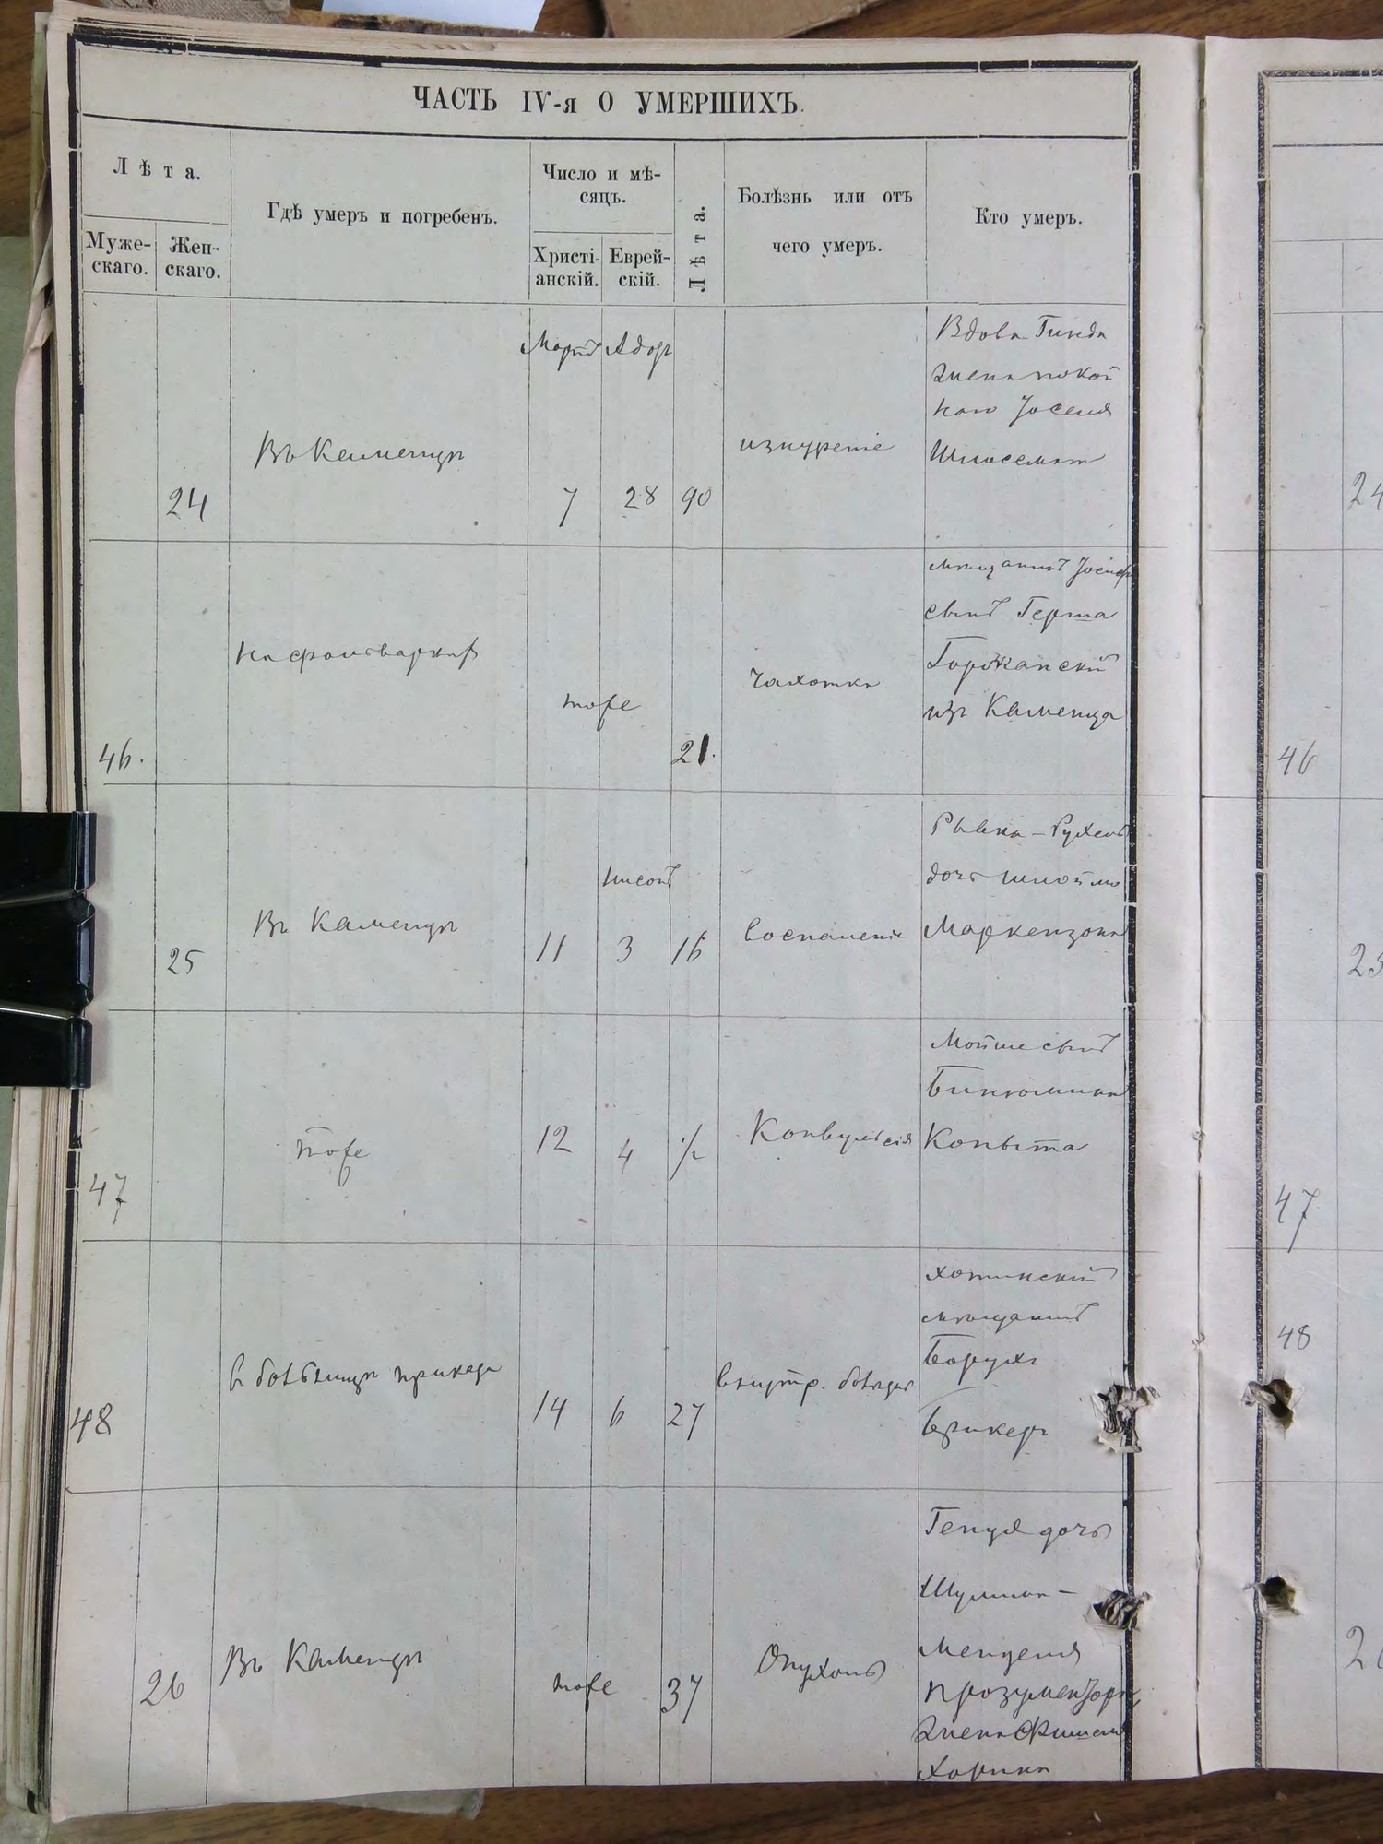 ЧАСТЬ IV-я О УМЕРШИХЪ.
Лѣта.
Муже-
скаго.
Жен-
скаго.
Гдѣ умеръ и погребенъ.
Число и мѣ-
сяцъ.
Христі-
анскій.
Еврей-
скій.
Лѣта.
Болѣзнь или отъ
чего умеръ.
Кто умеръ.
24
Въ Каменцѣ
Мартъ
7
Адаръ
28
90
изнуреніе
Вдова Гинда
жена покой
наго Іоселя
46.
на фольваркахъ
тоже
21.
чахотка
мѣщанинъ Іосифъ
сынъ Герша
Горожанскій
изъ Каменца
25
Въ Каменцѣ
11
нисонъ
3
16
воспаленіе
Рывка-Рухель
дочь Шлоймы
Маркензона
47
тоже
12
4
½
Конвульсія
Мойше сынъ
Биніомина
Копыта
48
в больницѣ
14
6
27
внутр. болѣзнь
хотинскій
мѣщанинъ
Борухъ
Брикеръ
26
Въ Каменцѣ
тоже
37
Опухоль
Генця дочь
Шулима-
Менделя
жена
46
47
48